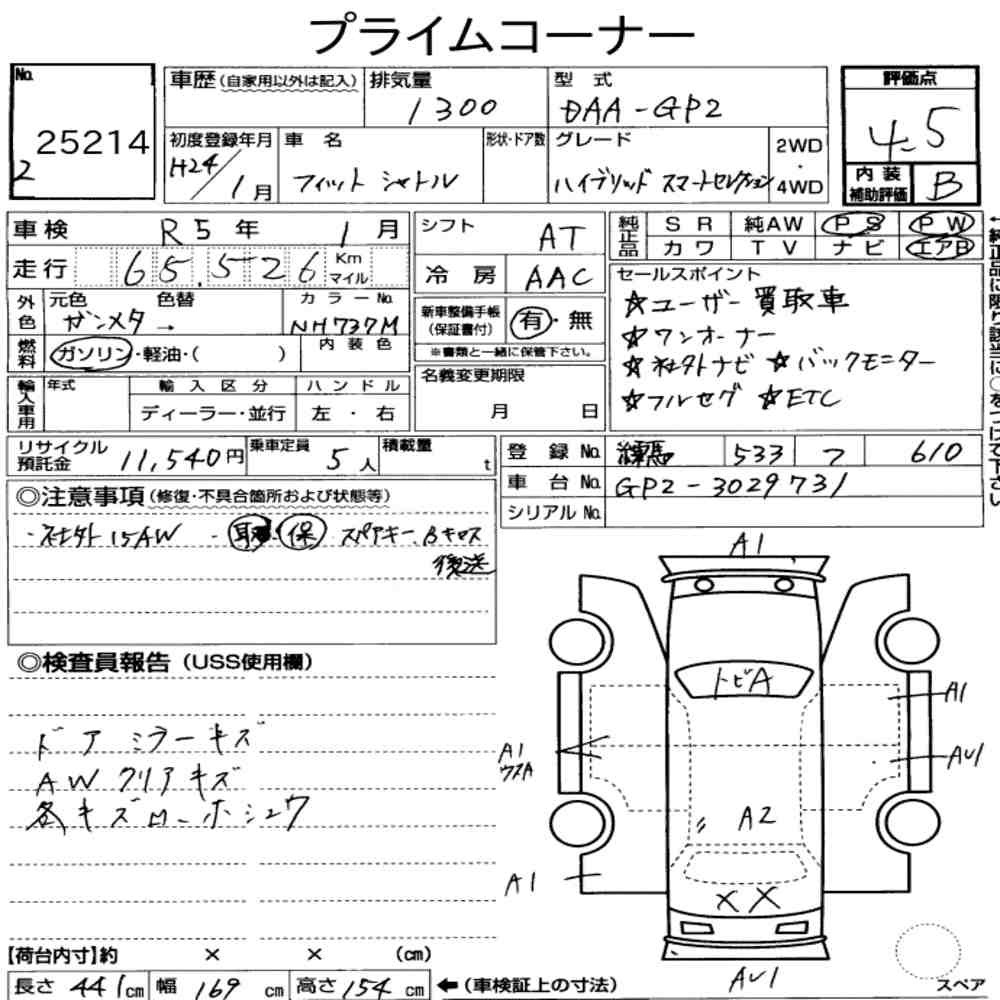 プライムコーナー
No.
25214
2
車歴(自家用以外は記入)
排気量
1300
型 式
DAA-GP2
評価点
4.5
内装補助評価
B
初度登録年月
H24/1月
車 名
フィット シャトル
形状・ドア数
グレード
ハイブリッド スマートセレクション
2WD
・
4WD
車検 R5年 1月
走行 65,526 Km マイル
シフト AT
冷 房 AAC
純正品
SR 純AW PS PW
カワ TV ナビ エアB
外色
元色 色替
ガンメタ →
カラーNo.
NH737M
燃料
ガソリン・軽油・( )
内 装 色
新車整備手帳
(保証書付)
有・無
※書類と一緒に保管下さい。
セールスポイント
☆ユーザー買取車
☆ワンオーナー
☆社外ナビ ☆バックモニター
☆フルセグ ☆ETC
輸入車用
年式
輸 入 区 分
ディーラー・並行
ハ ン ド ル
左 ・ 右
名義変更期限
月 日
リサイクル預託金 11,540円
乗車定員 5人
積載量 t
登 録 No. 練馬 533 フ 610
車 台 No. GP2-3029731
シリアル No.
◎注意事項(修復・不具合箇所および状態等)
・社外15AW ・取・保 スペアキー、Bキロス
後送
◎検査員報告(USS使用欄)
ドアミラーキズ
AWクリアキズ
各キズローホシュウ
A1
トビA
A1
AU1
A1
ウスA
A2
A1
XX
AU1
スペア
【荷台内寸】約 × × (cm)
長さ 441cm 幅 169 cm 高さ 154 cm
←(車検証上の寸法)